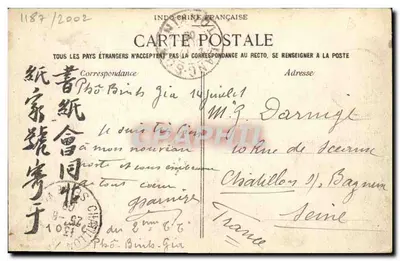 1187/2002
INDO-CHINE FRANÇAISE
CARTE POSTALE
TOUS LES PAYS ÉTRANGERS N'ACCEPTANT PAS LA CORRESPONDANCE AU RECTO, SE RENSEIGNER A LA POSTE
Correspondance
Adresse
Phô Binh Gia 14 juillet
Je suis
à mon nouveau
poste et vous embrasse
de tout coeur
du 2e
Phô-Binh-Gia
書紙會同
紙家號寄于
Mr G. Darnige
10 Rue de Sceaux
Chatillon s/ Bagneux
Seine
France